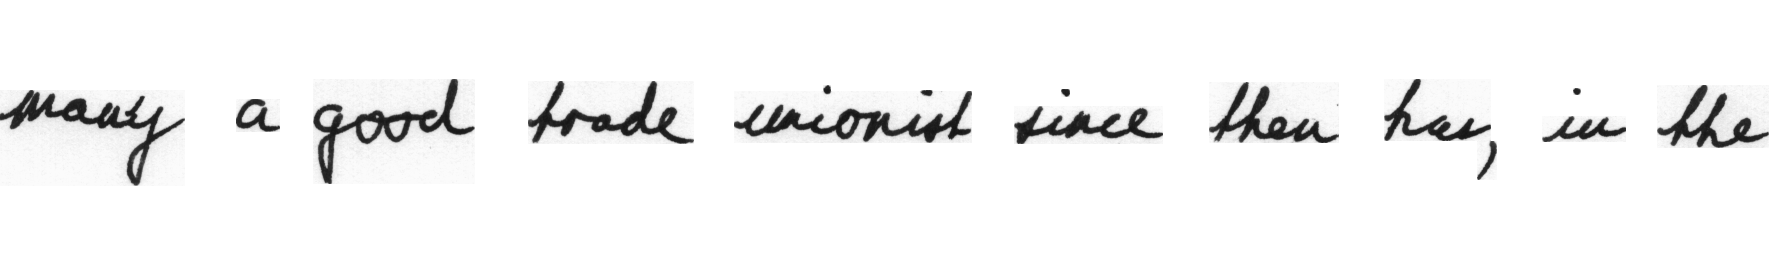 many a good trade unionist since then has, in the